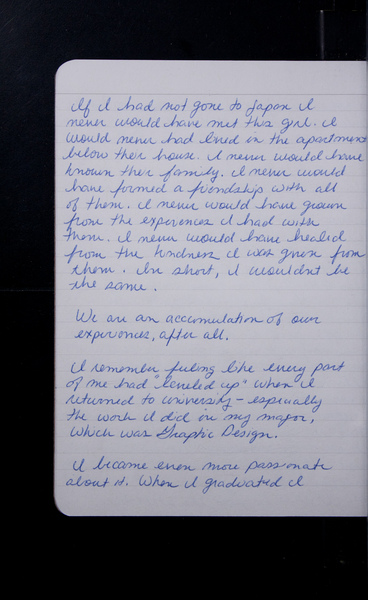 If I had not gone to Japan I
never would have met this girl. I
would never had lived in the apartment
below their house. I never would have
known their family. I never would
have formed a friendship with all
of them. I never would have grown
from the experiences I had with
them. I never would have healed
from the kindness I was given from
them. In short, I wouldn't be
the same.
We are an accumulation of our
experiences, after all.
I remember feeling like every part
of me had "leveled up" when I
returned to university - especially
the work I did in my major,
which was Graphic Design.
I became even more passionate
about it. When I graduated I